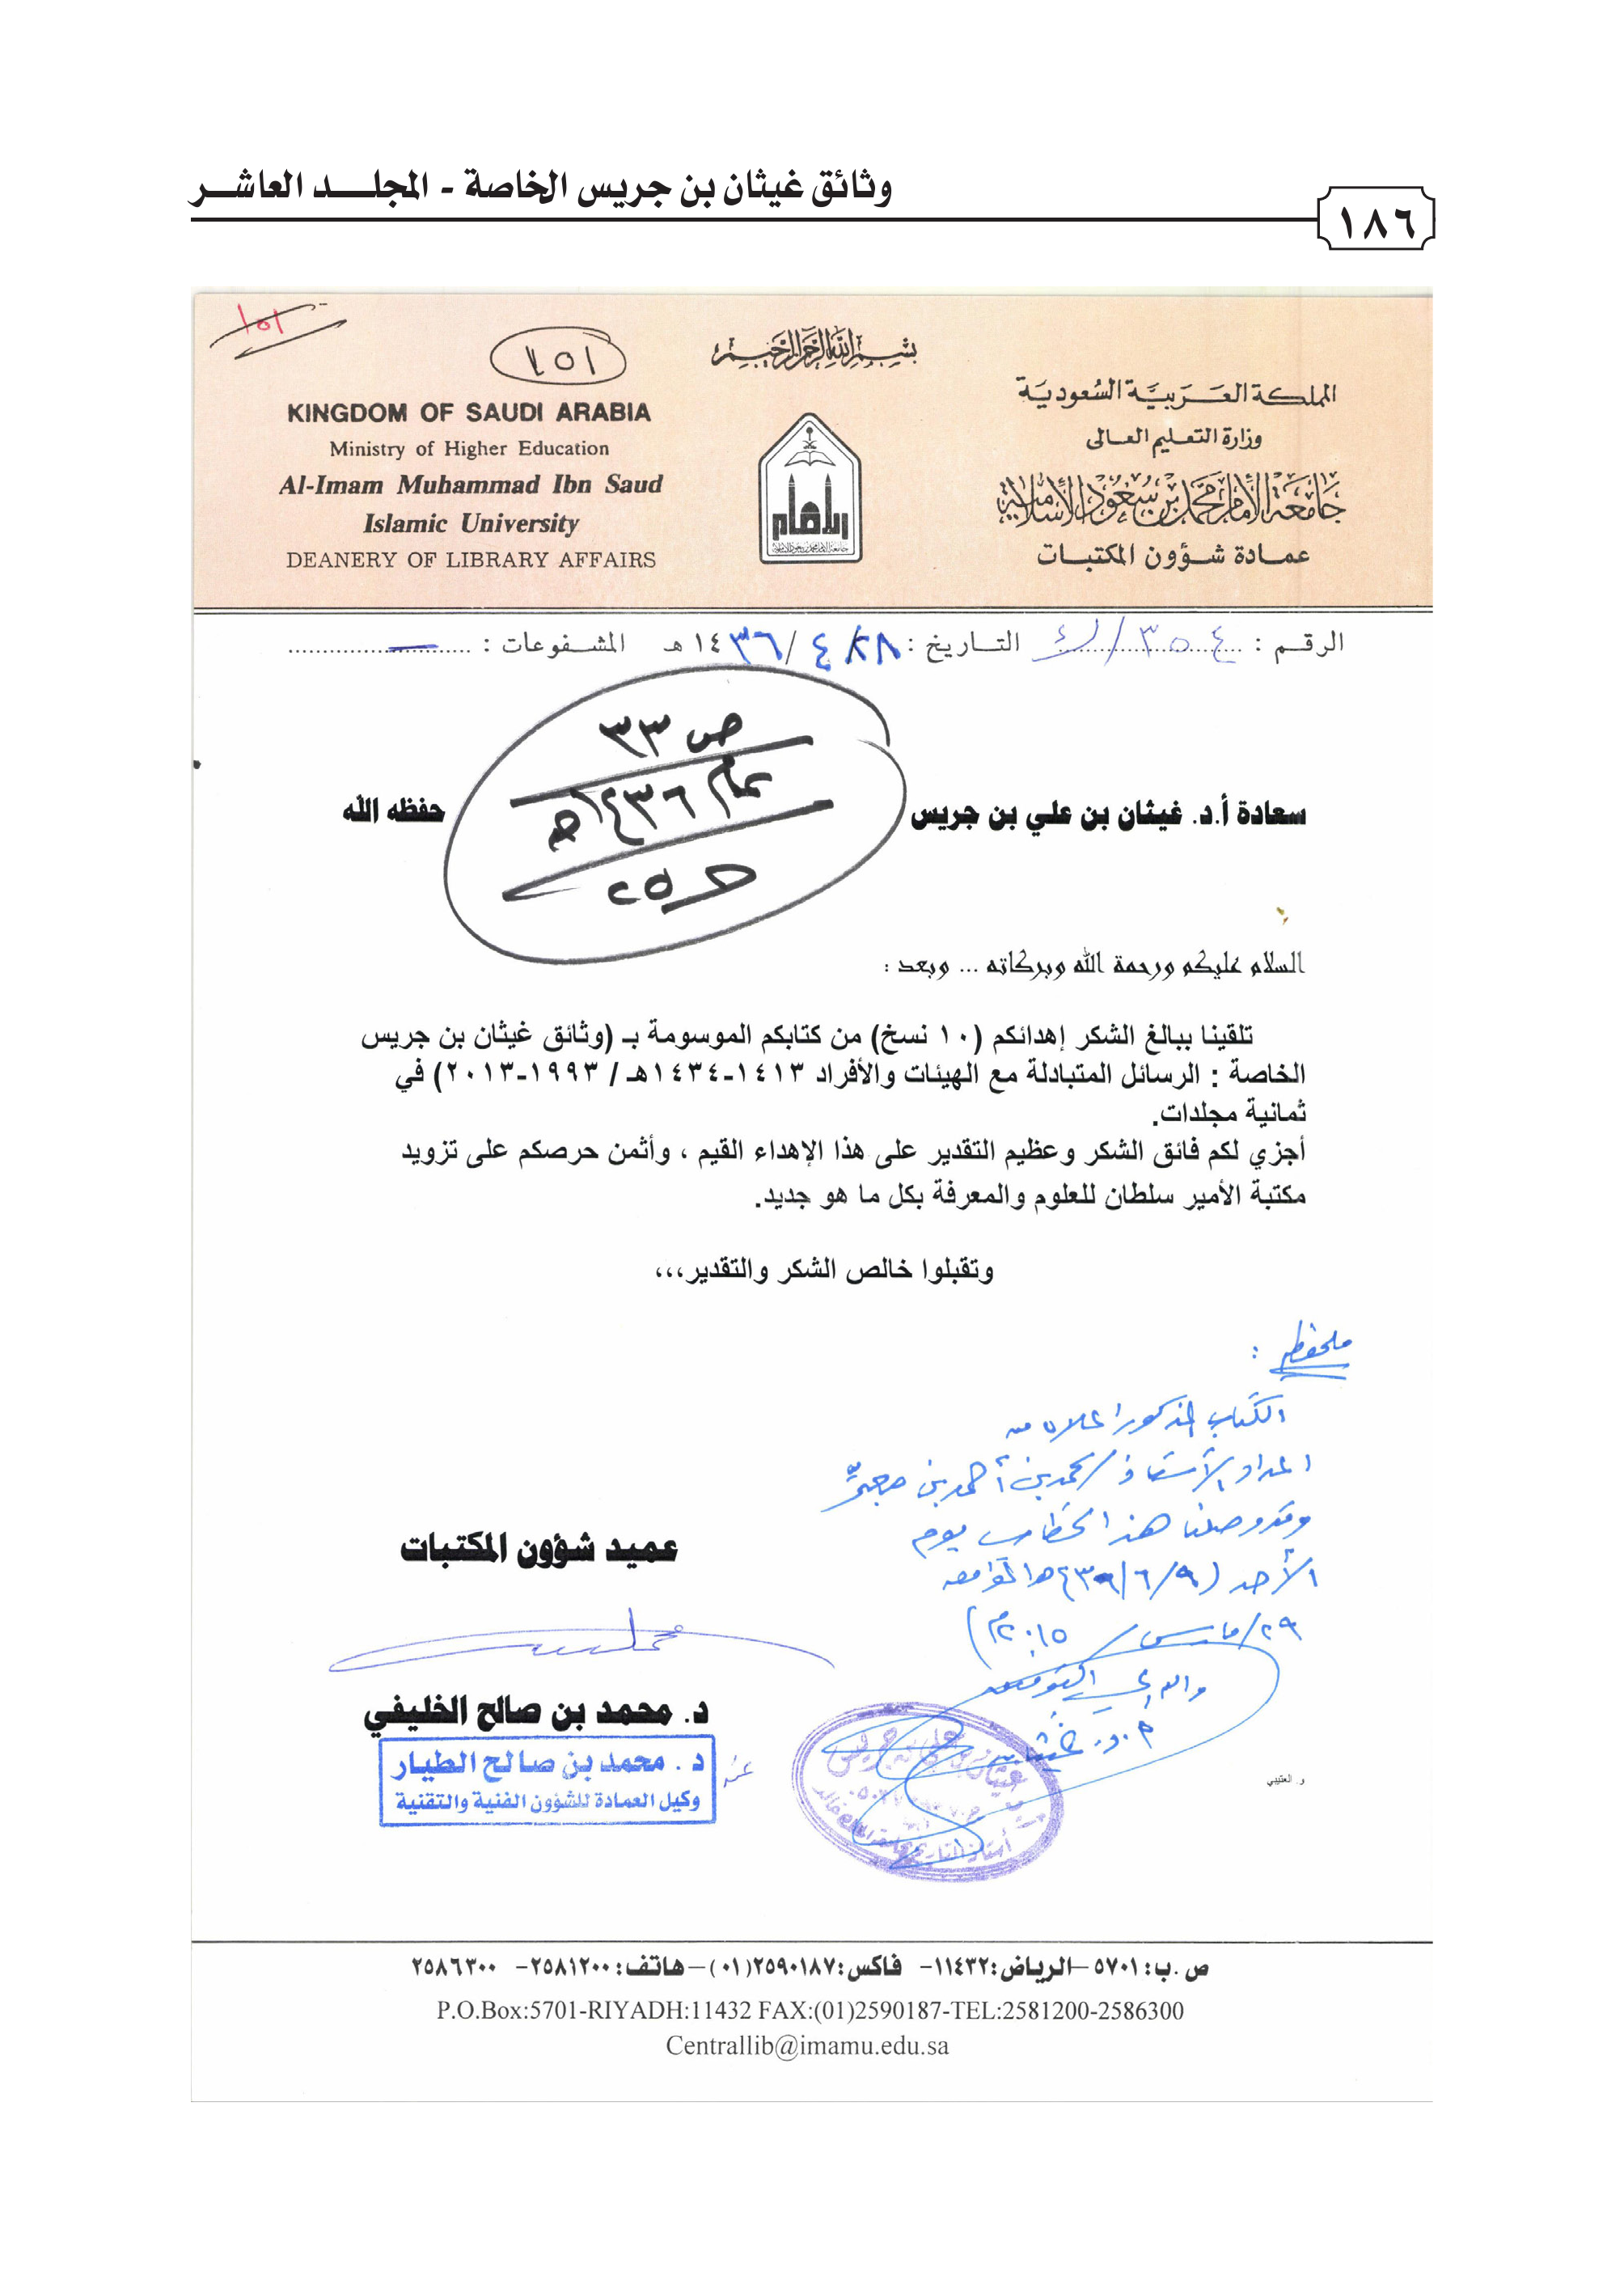 وثائق غيثان بن جريس الخاصة - المجلـــد العاشـــر
١٨٦
١٥١
١٥١
بسم الله الرحمن الرحيم
KINGDOM OF SAUDI ARABIA
Ministry of Higher Education
Al-Imam Muhammad Ibn Saud
Islamic University
DEANERY OF LIBRARY AFFAIRS
المملكة العربية السعودية
وزارة التعليم العالى
جامعة الإمام محمد بن سعود الإسلامية
عمادة شؤون المكتبات
الإمام
جامعة الإمام محمد بن سعود الإسلامية
الرقم : ٣٥٤/ التاريخ : ٢٨/٤/١٤٣٦ هـ المشفوعات : ــ
ص ٣٣
عام ١٤٣٦هـ
ح٢٥
سعادة أ.د. غيثان بن علي بن جريس حفظه الله
السلام عليكم ورحمة الله وبركاته ... وبعد :
تلقينا ببالغ الشكر إهدائكم (١٠ نسخ) من كتابكم الموسومة بـ (وثائق غيثان بن جريس
الخاصة : الرسائل المتبادلة مع الهيئات والأفراد ١٤١٣-١٤٣٤هـ / ١٩٩٣-٢٠١٣) في
ثمانية مجلدات.
أجزي لكم فائق الشكر وعظيم التقدير على هذا الإهداء القيم ، وأثمن حرصكم على تزويد
مكتبة الأمير سلطان للعلوم والمعرفة بكل ما هو جديد.
وتقبلوا خالص الشكر والتقدير،،،
ملحفظه :
الكتاب المذكور اعلاه من
اعداد الأستاذ / محمد بن أحمد بن معبر
وقد وصلنا هذا الخطاب يوم
الأحد (٩/٦/ الموافق
٢٩/مارس/٢٠١٥م)
والله ولي التوفيق
أ.د. غيثان
عميد شؤون المكتبات
د. محمد بن صالح الخليفي
عنه
د . محمد بن صالح الطيار
وكيل العمادة للشؤون الفنية والتقنية
غيثان بن علي بن جريس
أستاذ التاريخ بجامعة الملك خالد
و. العتيبي
ص.ب: ٥٧٠١–الرياض:١١٤٣٢- فاكس:٢٥٩٠١٨٧(٠١)–هاتف: ٢٥٨١٢٠٠- ٢٥٨٦٣٠٠
P.O.Box:5701-RIYADH:11432 FAX:(01)2590187-TEL:2581200-2586300
Centrallib@imamu.edu.sa